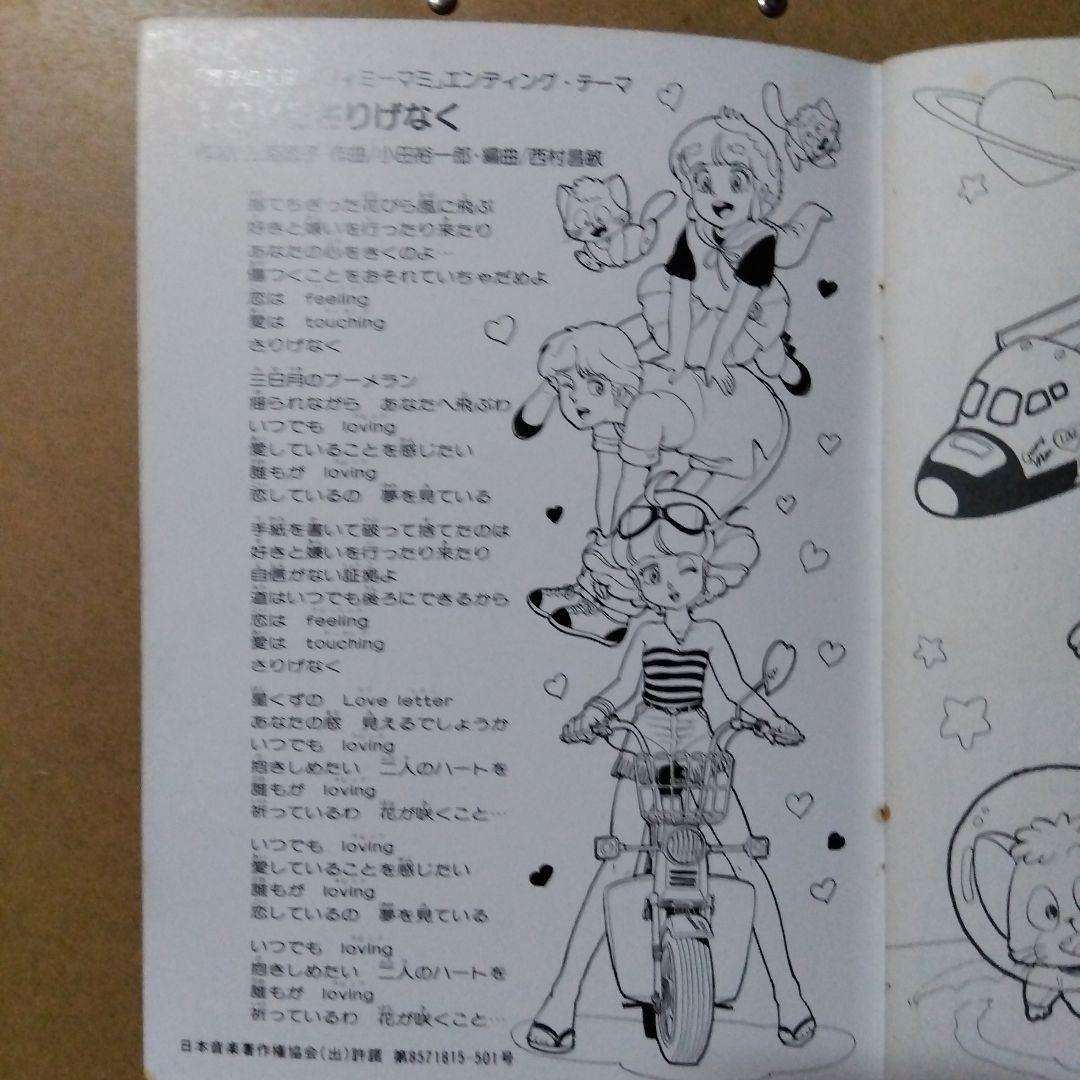 ィミーマミ」エンディング・テーマ
さりげなく
子 作曲/小田裕一郎・編曲/西村昌敏
ちぎった花びら風に飛ぶ
好きと嫌いを行ったり来たり
あなたの心をきくのよ…
傷つくことをおそれていちゃだめよ
恋は feeling
愛は touching
さりげなく
三日月のブーメラン
揺られながら あなたへ飛ぶわ
いつでも loving
愛していることを感じたい
誰もが loving
恋しているの 夢を見ている
手紙を書いて破って捨てたのは
好きと嫌いを行ったり来たり
自信がない証拠よ
道はいつでも後ろにできるから
恋は feeling
愛は touching
さりげなく
星くずの Love letter
あなたの窓 見えるでしょうか
いつでも loving
抱きしめたい 二人のハートを
誰もが loving
祈っているわ 花が咲くこと…
いつでも loving
愛していることを感じたい
誰もが loving
恋しているの 夢を見ている
いつでも loving
抱きしめたい 二人のハートを
誰もが loving
祈っているわ 花が咲くこと…
日本音楽著作権協会(出)許諾 第8571815-501号